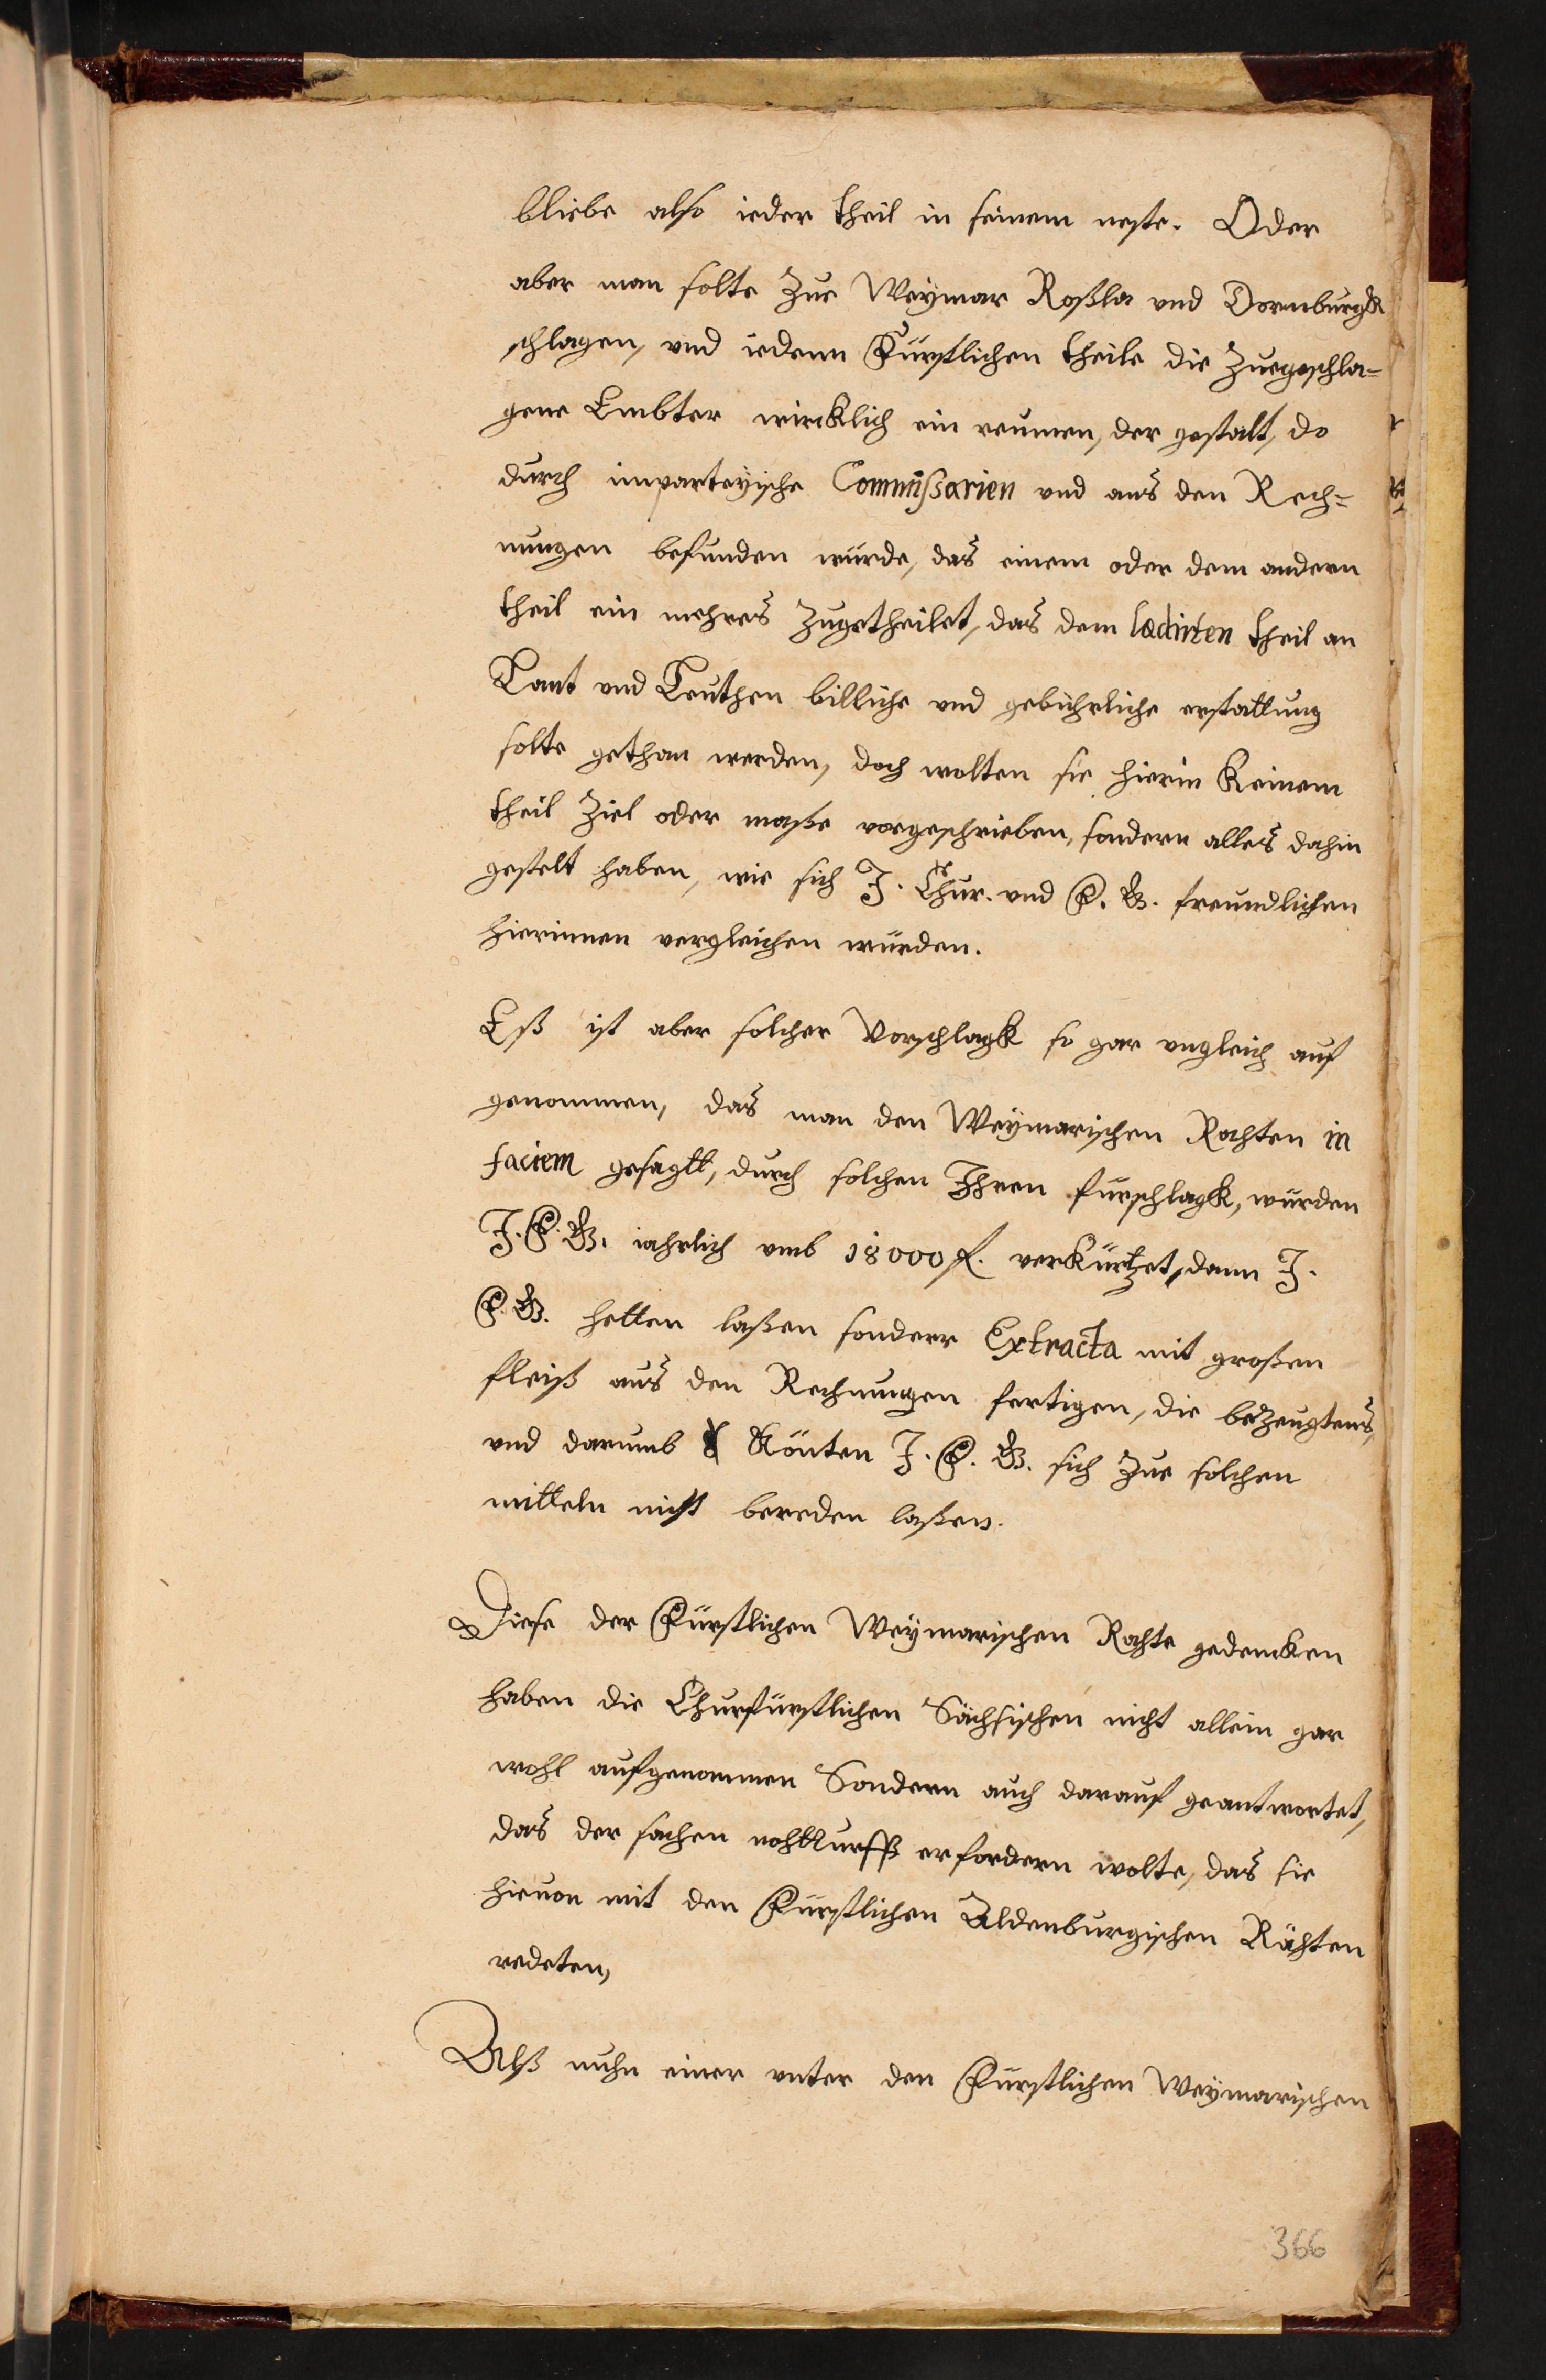 bliebe also ieder theil in seinem neste. Oder
aber man solte Zue Weymar Roßla und Dornburgk
schlagen, vnd iedem Fürstlichen theile die Zuegeschla=
gene Embter wircklich ein reumen, der gestalt, do
durch unparteyische Commißarien vnd aus den Rech=
nungen befunden würde, das einem oder dem andern
theil ein mehres Zugetheilet, das dem lædirten theil an
Lant vnd Leuthen billiche vnd gebührliche erstattung
solte gethan werden, doch wolten sie hierin keinem
theil Ziel oder maße vorgeschrieben, sondern alles dahin
gestelt haben, wie sich J. Chur. vnd F. G. freundlichen
hierinnen vergleichen würden.
Eß ist aber solcher Vorschlagk so gar vngleich auf
genommen, das man den Weymarischen Rahten in
faciem gesagtt, durch solchen Ihren fürschlagk, würden
J. F. G. iahrlich vmb 18000 f. verkürtzet, dann J.
F. G. hetten laßen sonderr Extracta mit großen
fleiß aus den Rechnungen fertigen, die beZeugtens,
vnd darumb könten J. F. G. sich Zue solchen
mitteln nicht bereden laßen.
Diese der Fürstlichen Weymarischen Rahte gedencken
haben die Churfürstlichen Sächsischen nicht allein gar
wohl aufgenommen Sondern auch darauf geantwortet,
das der sachen nohtturfft erfordern wolte, das sie
hieuon mit den Fürstlichen Aldenburgischen Rähten
redeten,
Alß nuhn einer vnter den Fürstlichen Weymarischen
366